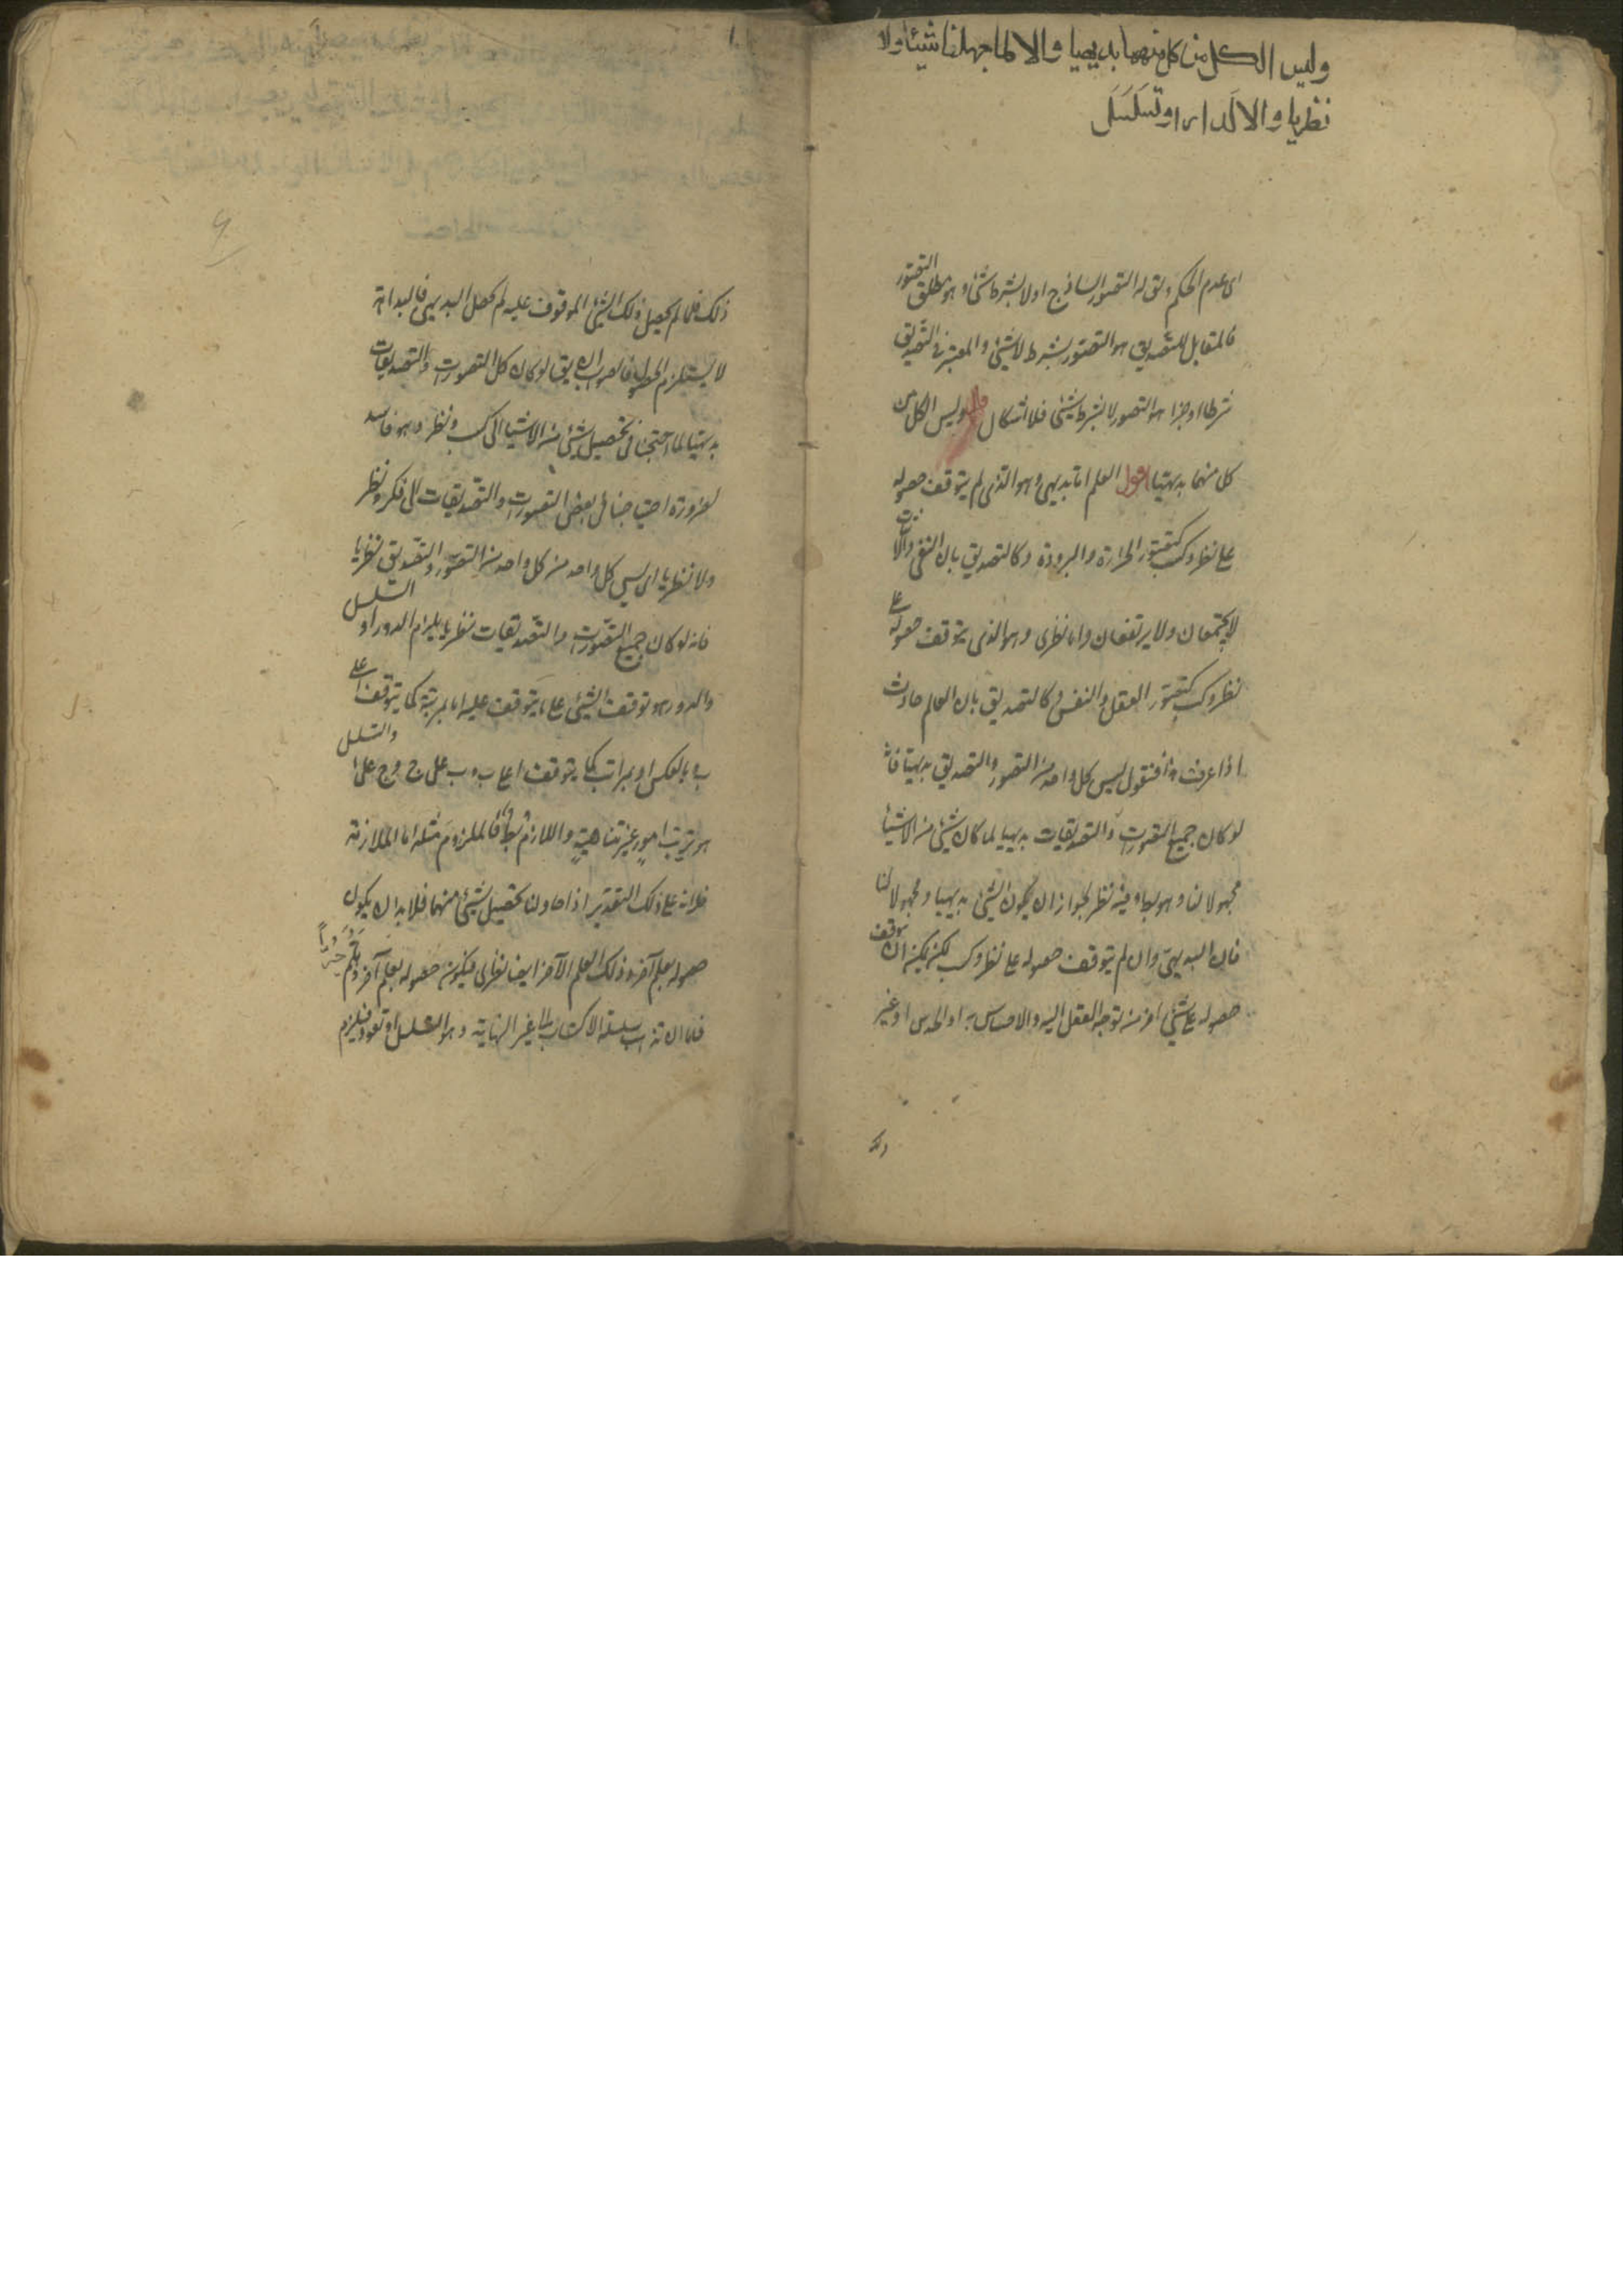 وليس الكل من كل منهما بديهيا والا لما جهلنا شيئا ولا
نظريا والا لدار او تسلسل
اى عدم الحكم ويق له التصور الساذج اولا بشرط شئ وهو مطلق التصور
فالمقابل للتصديق هو التصور بشرط لا شئ والمعتبر فى التصديق
شرطا او جزا هو التصور لا بشرط شئ فلا اشكال قال وليس الكل من
كل منهما بديهيا اقول العلم اما بديهى وهو الذى لم يتوقف حصوله
على نظر وكسب كتصور الحرارة والبرودة وكالتصديق بان النفى والاثبات
لا يجتمعان ولا يرتفعان واما نظرى وهو الذى يتوقف حصوله على
نظر وكسب كتصور العقل والنفس وكالتصديق بان العالم حادث
اذا عرفت هذا فنقول ليس كل واحد من التصور والتصديق بديهيا فانه
لو كان جميع التصورات والتصديقات بديهيا لما كان شئ من الاشيا
مجهولا لنا وهو بط وفيه نظر لجواز ان يكون الشئ بديهيا ومجهولا لنا
فان البديهى وان لم يتوقف حصوله على نظر وكسب لكن يمكن ان يتوقف
حصوله على شئ اخر من توجه العقل اليه والاحساس به او الحدس او غير
ذلك
ذلك فما لم يحصل ذلك الشئ الموقوف عليه لم يحصل البديهى فالبداهة
لا يستلزم الحصول فالصواب ان يق لو كان كل التصورات والتصديقات
بديهيا لما احتجنا فى تحصيل شئ من الاشيا الى كسب ونظر وهو فاسد
لضرورة احتياجنا فى بعض التصورات والتصديقات الى فكر ونظر
ولا نظريا اى ليس كل واحد من كل واحد من التصور والتصديق نظريا
فانه لو كان جميع التصورات والتصديقات نظريا يلزم الدور او التسلسل
والدور هو توقف الشئ على ما يتوقف عليه اما بمرتبة كما يتوقف ا على
ب وبالعكس او بمراتب كما يتوقف ا على ب وب على ج وج على ا والتسلسل
هو ترتب امور غير متناهية واللازم بط فالملزوم مثله اما الملازمة
فلانه على ذلك التقدير اذا حاولنا تحصيل شئ منهما فلا بد ان يكون
حصوله بعلم آخر وذلك العلم الآخر ايضا نظرى فيكون حصوله بعلم آخر وهلم جرا
فاما ان تذهب سلسلة الاكتساب الى غير النهاية وهو التسلسل او تعود فيلزم